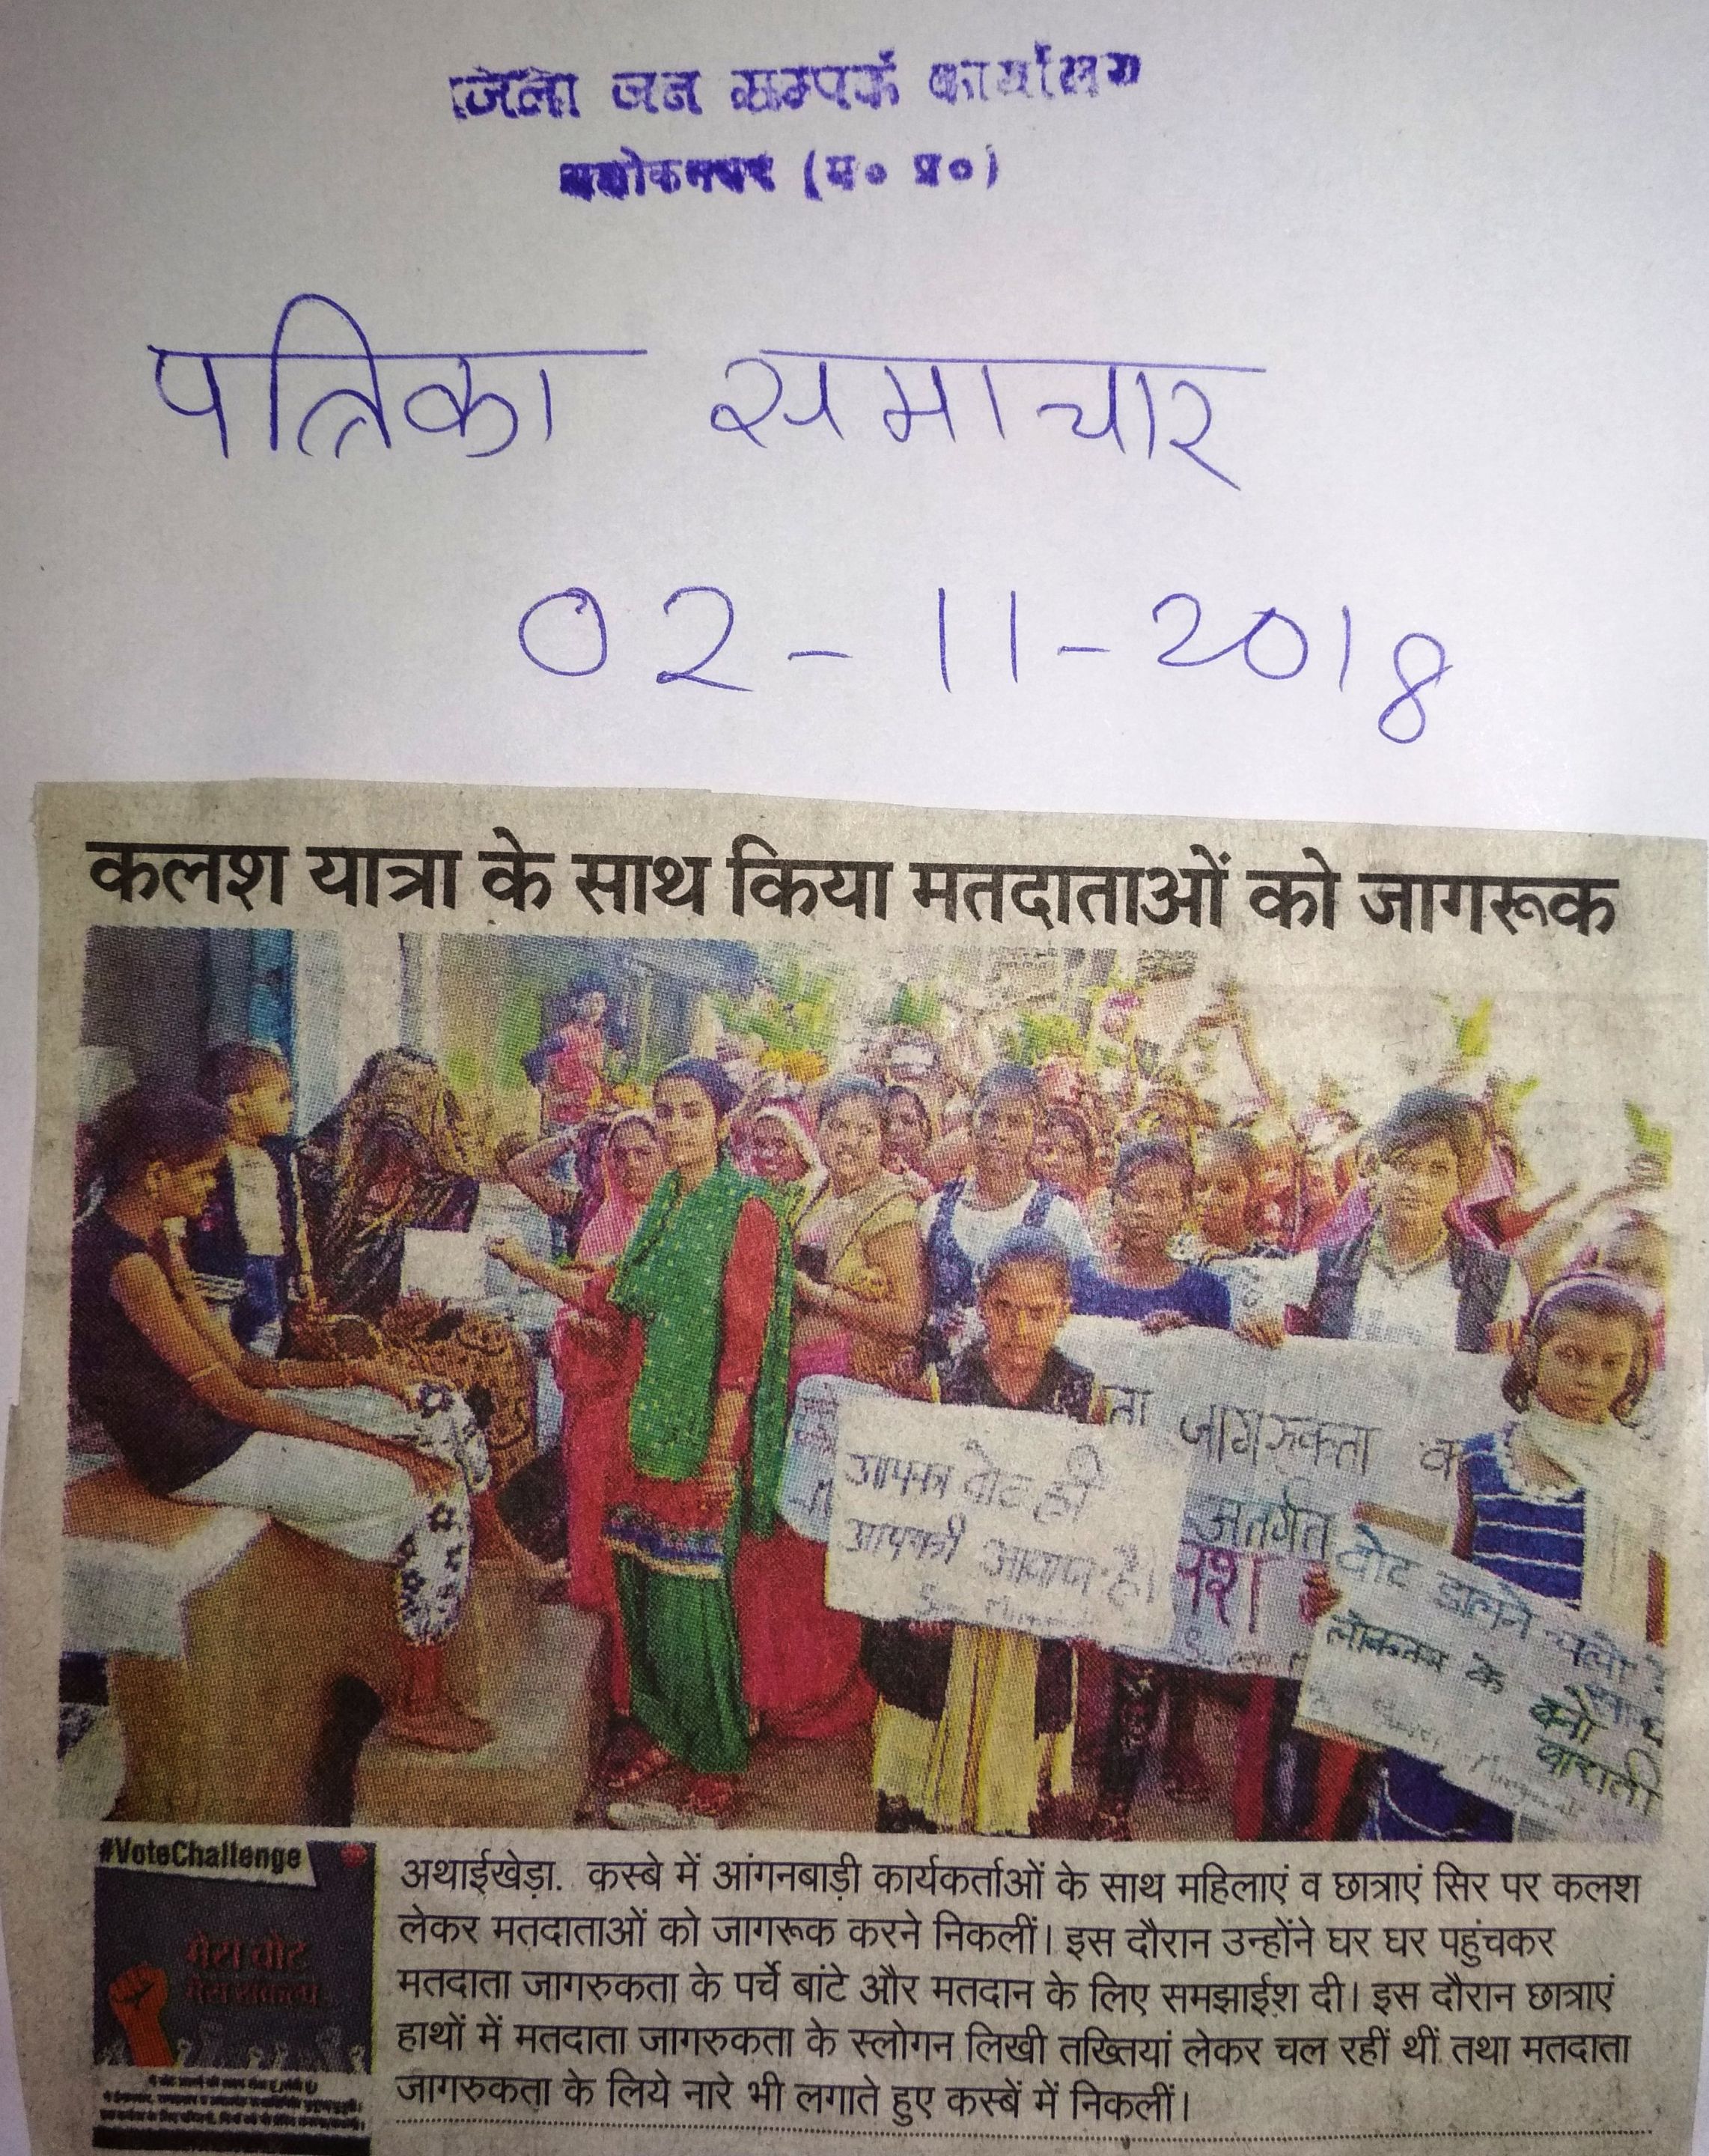 जिला जन सम्पर्क कार्यालय
अशोकनगर (म० प्र०)
पत्रिका समाचार
02-11-2018
कलश यात्रा के साथ किया मतदाताओं को जागरूक
ता जागरुकता क
अंतर्गत
आपका वोट ही
आपकी आवाज है।
वोट डालने चलो रे
लोकतंत्र के
बनो
बाराती
#VoteChallenge
मेरा वोट
मेरा संकल्प
अथाईखेड़ा. कस्बे में आंगनबाड़ी कार्यकर्ताओं के साथ महिलाएं व छात्राएं सिर पर कलश
लेकर मतदाताओं को जागरूक करने निकलीं। इस दौरान उन्होंने घर घर पहुंचकर
मतदाता जागरुकता के पर्चे बांटे और मतदान के लिए समझाईश दी। इस दौरान छात्राएं
हाथों में मतदाता जागरुकता के स्लोगन लिखी तख्तियां लेकर चल रहीं थीं तथा मतदाता
जागरुकता के लिये नारे भी लगाते हुए कस्बें में निकलीं।